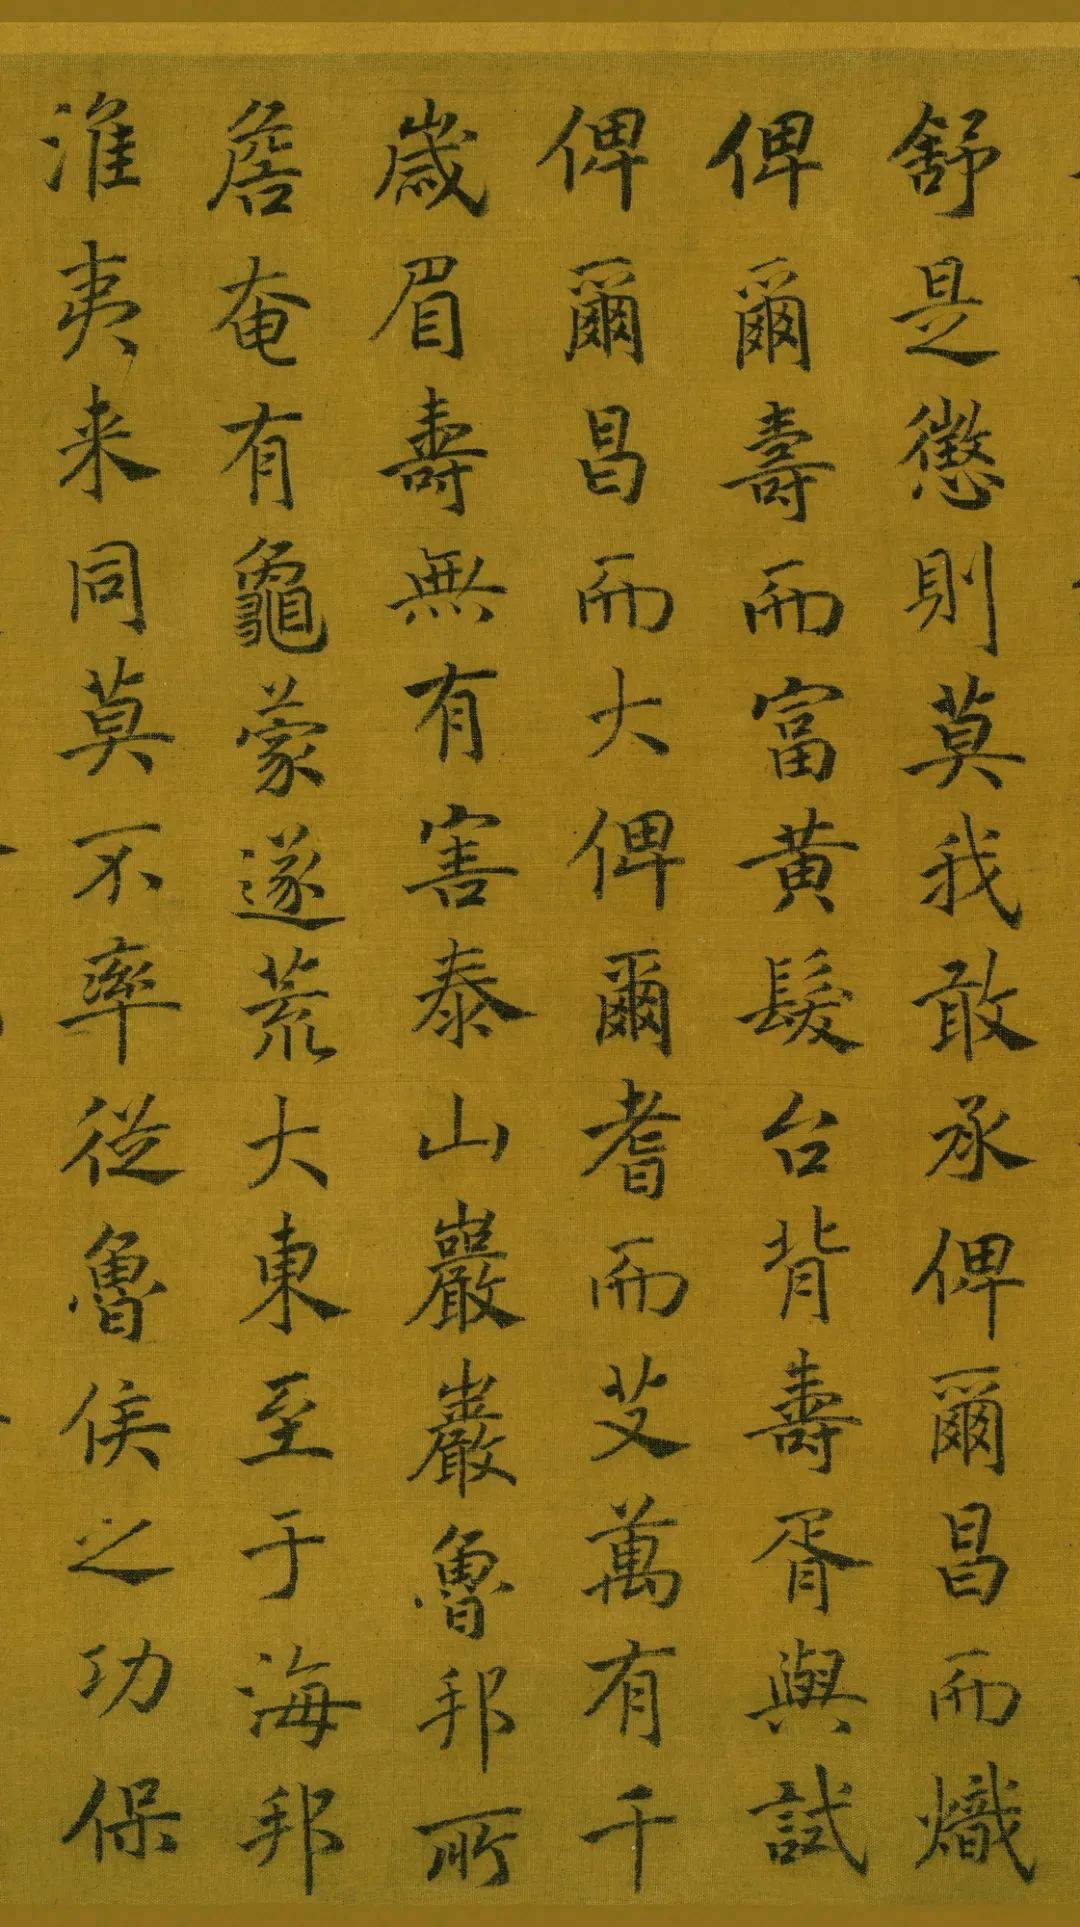 舒是懲則莫我敢承俾爾昌而熾
俾爾壽而富黃髮台背壽胥與試
俾爾昌而大俾爾耆而艾萬有千
歲眉壽無有害泰山巖巖魯邦所
詹奄有龜蒙遂荒大東至于海邦
淮夷来同莫不率從魯侯之功保